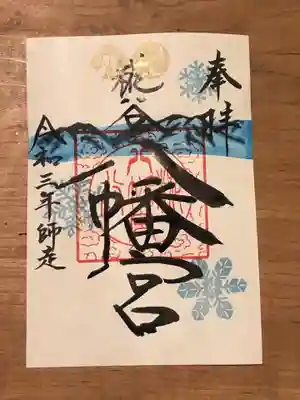 奉拝
熊谷八幡宮
令和三年師走